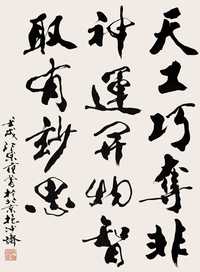 天工巧奪非
神運開物智
取有妙思
壬戌